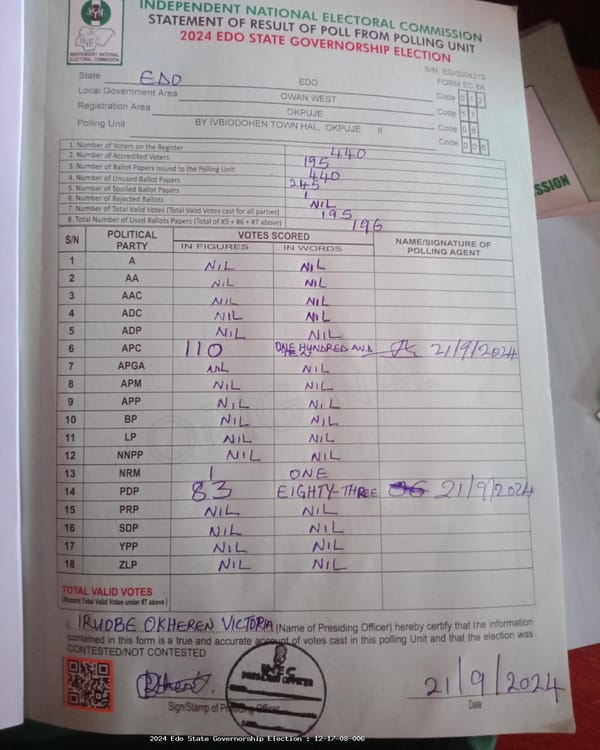 INEC
INDEPENDENT NATIONAL
ELECTORAL COMMISSION
INDEPENDENT NATIONAL ELECTORAL COMMISSION
STATEMENT OF RESULT OF POLL FROM POLLING UNIT
2024 EDO STATE GOVERNORSHIP ELECTION
S/N: EG/0004312
FORM EC 8A
State EDO EDO
Local Government Area OWAN WEST Code 012
Registration Area OKPUJE Code 17
Polling Unit BY IVBIODOHEN TOWN HAL, OKPUJE II Code 08
Code 006
1. Number of Voters on the Register 440
2. Number of Accredited Voters 195
3. Number of Ballot Papers Issued to the Polling Unit 440
4. Number of Unused Ballot Papers 245
5. Number of Spoiled Ballot Papers 1
6. Number of Rejected Ballots NIL
7. Number of Total Valid Votes (Total Valid Votes cast for all parties) 195
8. Total Number of Used Ballots Papers (Total of #5 + #6 + #7 above) 196
S/N POLITICAL PARTY VOTES SCORED NAME/SIGNATURE OF POLLING AGENT
IN FIGURES IN WORDS
1 A NIL NIL
2 AA NIL NIL
3 AAC NIL NIL
4 ADC NIL NIL
5 ADP NIL NIL
6 APC 110 ONE HUNDRED AND TEN 21/9/2024
7 APGA NIL NIL
8 APM NIL NIL
9 APP NIL NIL
10 BP NIL NIL
11 LP NIL NIL
12 NNPP NIL NIL
13 NRM 1 ONE
14 PDP 83 EIGHTY-THREE 21/9/2024
15 PRP NIL NIL
16 SDP NIL NIL
17 YPP NIL NIL
18 ZLP NIL NIL
TOTAL VALID VOTES
(Record Total Valid Votes under #7 above)
I, IRUOBE OKHEREN VICTORIA (Name of Presiding Officer) hereby certify that the information
contained in this form is a true and accurate account of votes cast in this polling Unit and that the election was
CONTESTED/NOT CONTESTED
INEC
PRESIDING OFFICER
21/9/2024
Sign/Stamp of Presiding Officer
Date
SSION
2024 Edo State Governorship Election : 12-17-08-006